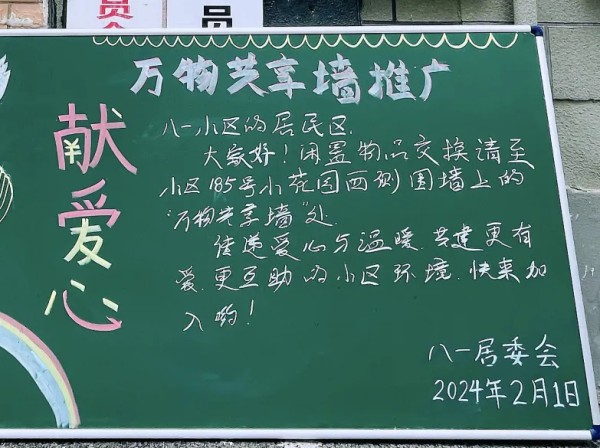 员
会
员
万物共享墙推广
献爱心
八一小区的居民区.
大家好！闲置物品交换请至
小区185号小花园西侧围墙上的
“万物共享墙”处.
传递爱心与温暖.共建更有
爱.更互助的小区环境.快来加
入哟！
八一居委会
2024年2月1日